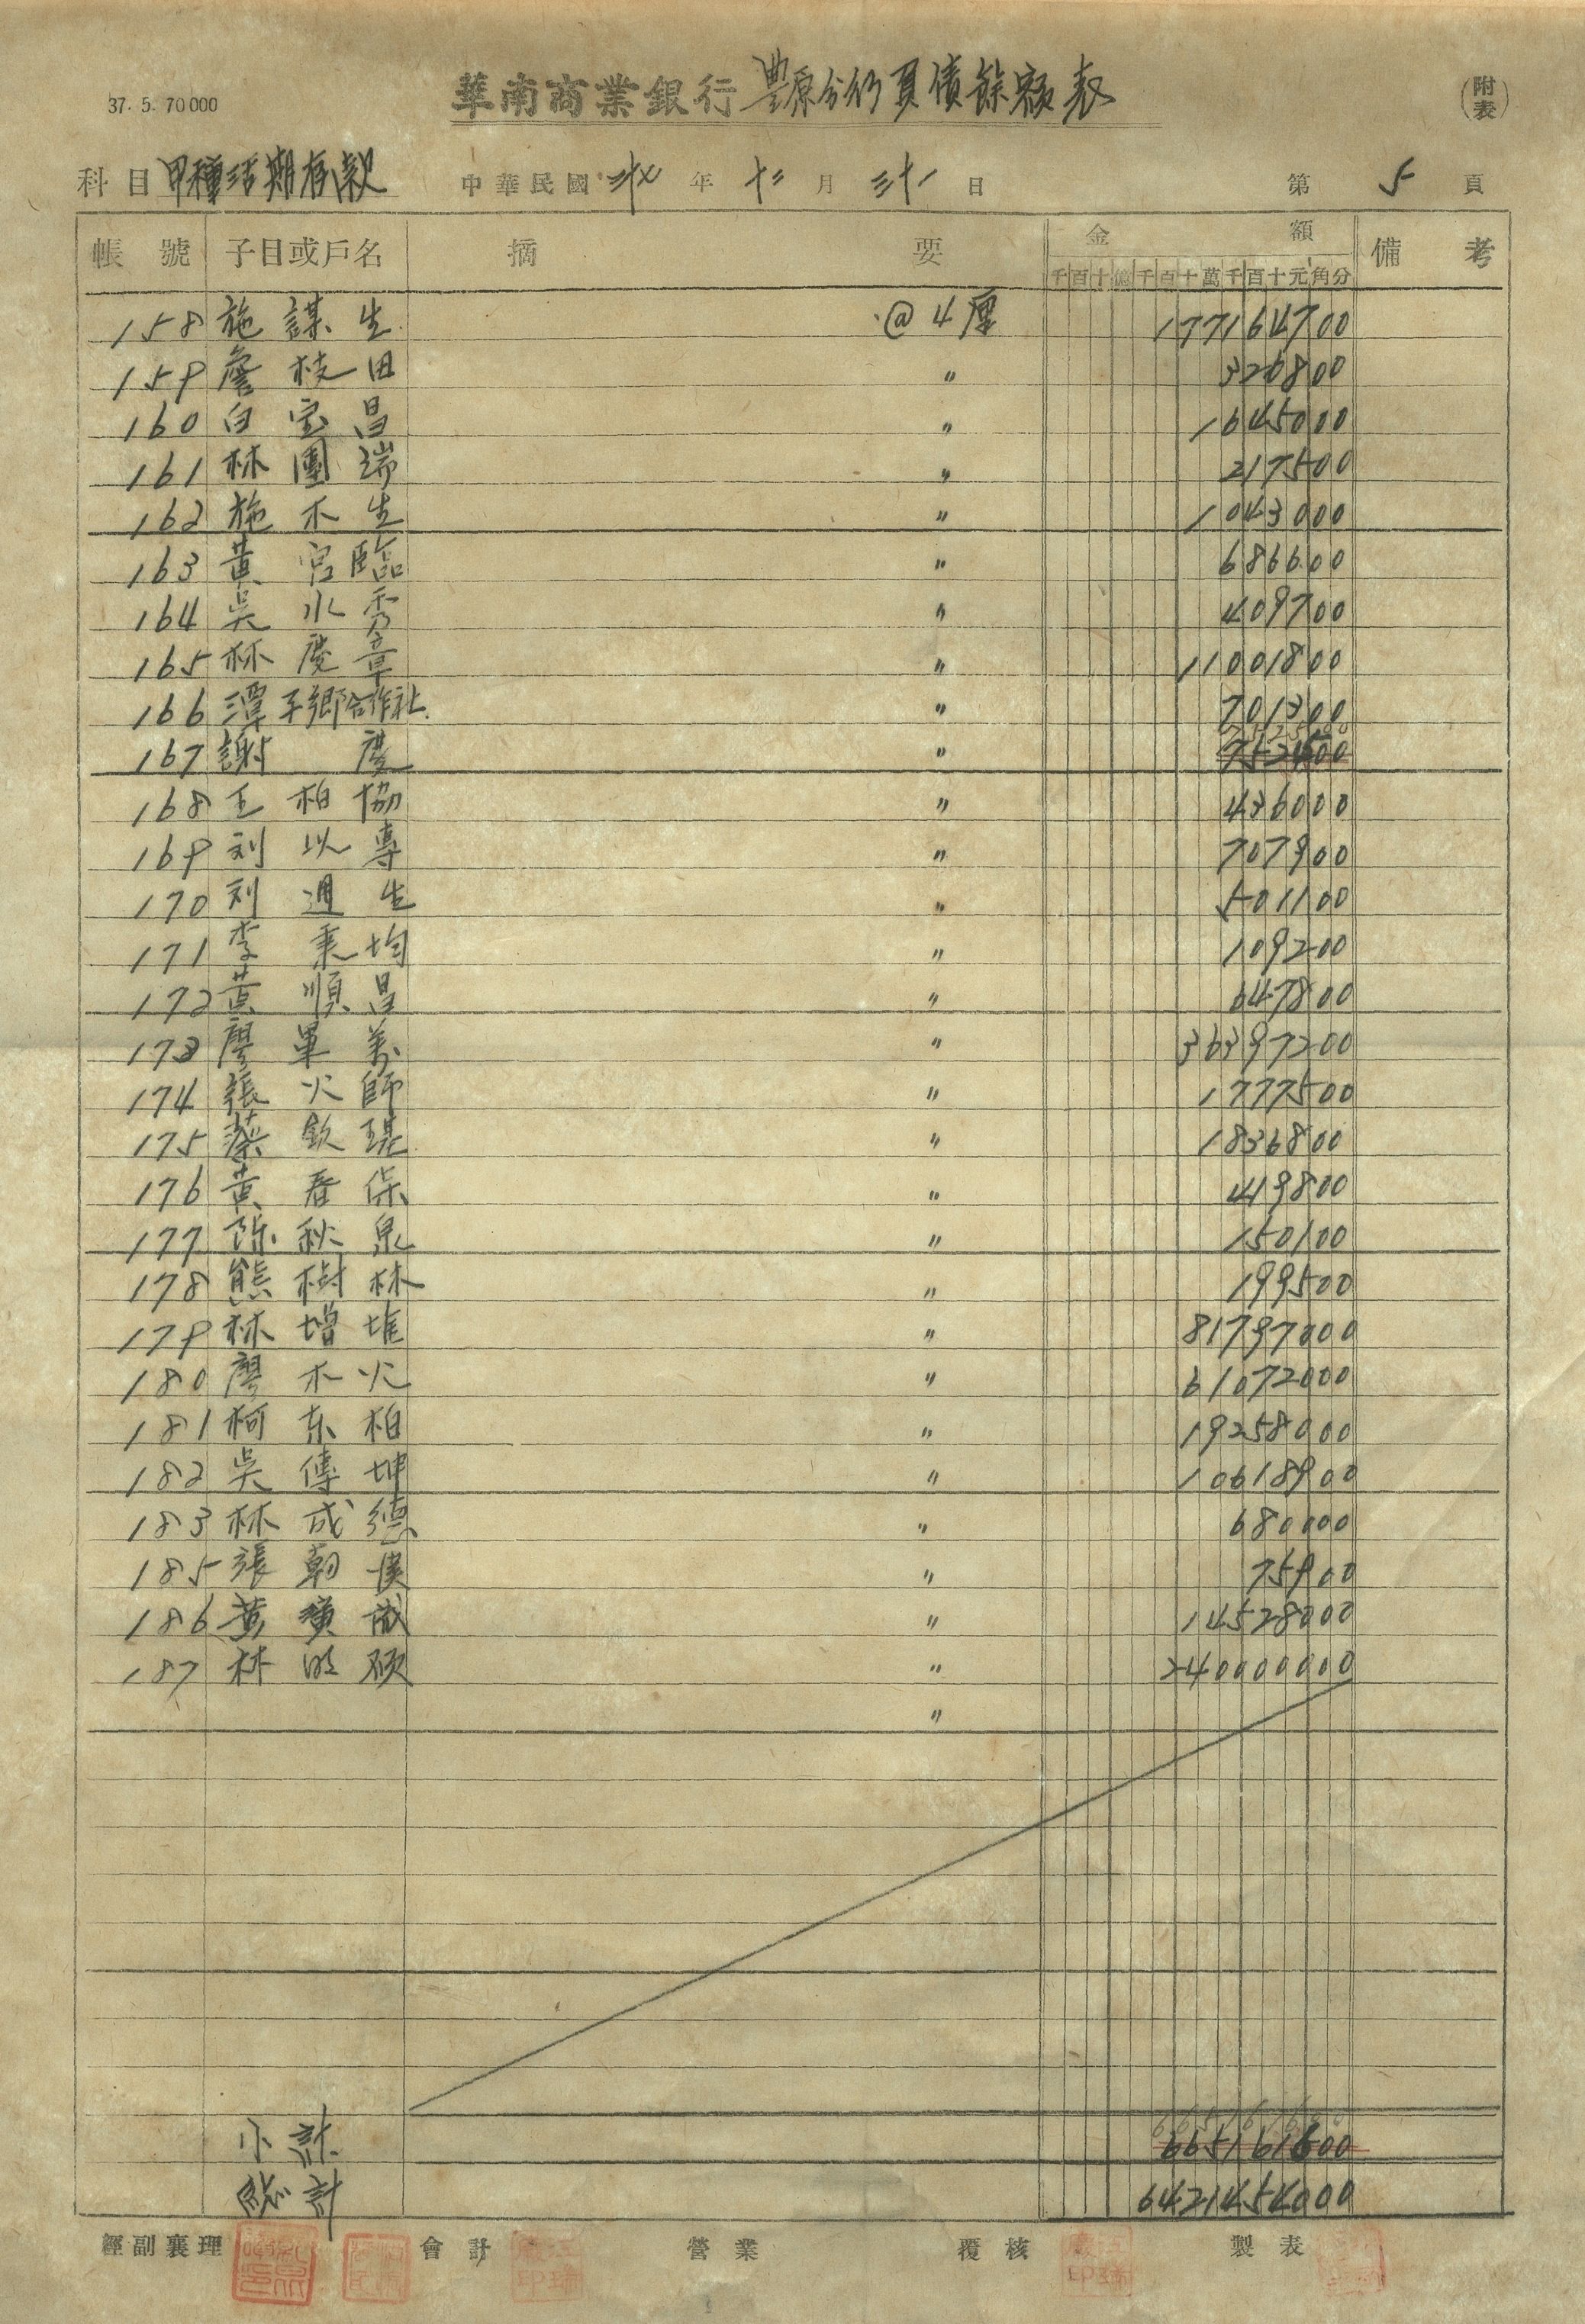 37. 5. 70000
華南商業銀行豐原分行負債餘額表
(附表)
科目甲種活期存款 中華民國 卅七 年 十二 月 三十一 日 第 5 頁
帳號 子目或戶名 摘要 金額 備考
千百十億千百十萬千百十元角分
158 施謀生 @4厘 177164700
159 詹枝田 〃 326800
160 白宝昌 〃 1645000
161 林團瑞 〃 217500
162 施木生 〃 1043000
163 黃宮臨 〃 686600
164 吳水秀 〃 409700
165 林慶章 〃 11001800
166 潭子鄉合作社 〃 701300
167 謝慶 〃
168 王柏協 〃 436000
169 刘以專 〃 707900
170 刘週生 〃 501100
171 李秉均 〃 109200
172 黃順昌 〃 647800
173 廖軍萬 〃 36397200
174 張火師 〃 1777500
175 蔡欽琨 〃 1836800
176 黃春保 〃 419800
177 陈秋泉 〃 150100
178 熊樹林 〃 199500
179 林增堆 〃 81797000
180 廖木火 〃 61072000
181 柯东柏 〃 19258000
182 吳傳坤 〃 10618900
183 林成德 〃 680000
185 張朝 〃 75900
186 黃 誠 〃 14528000
187 林 碩 〃 240000000
〃
小計 665161600
總計 6421454000
經副襄理 會計 營業 覆核 製表